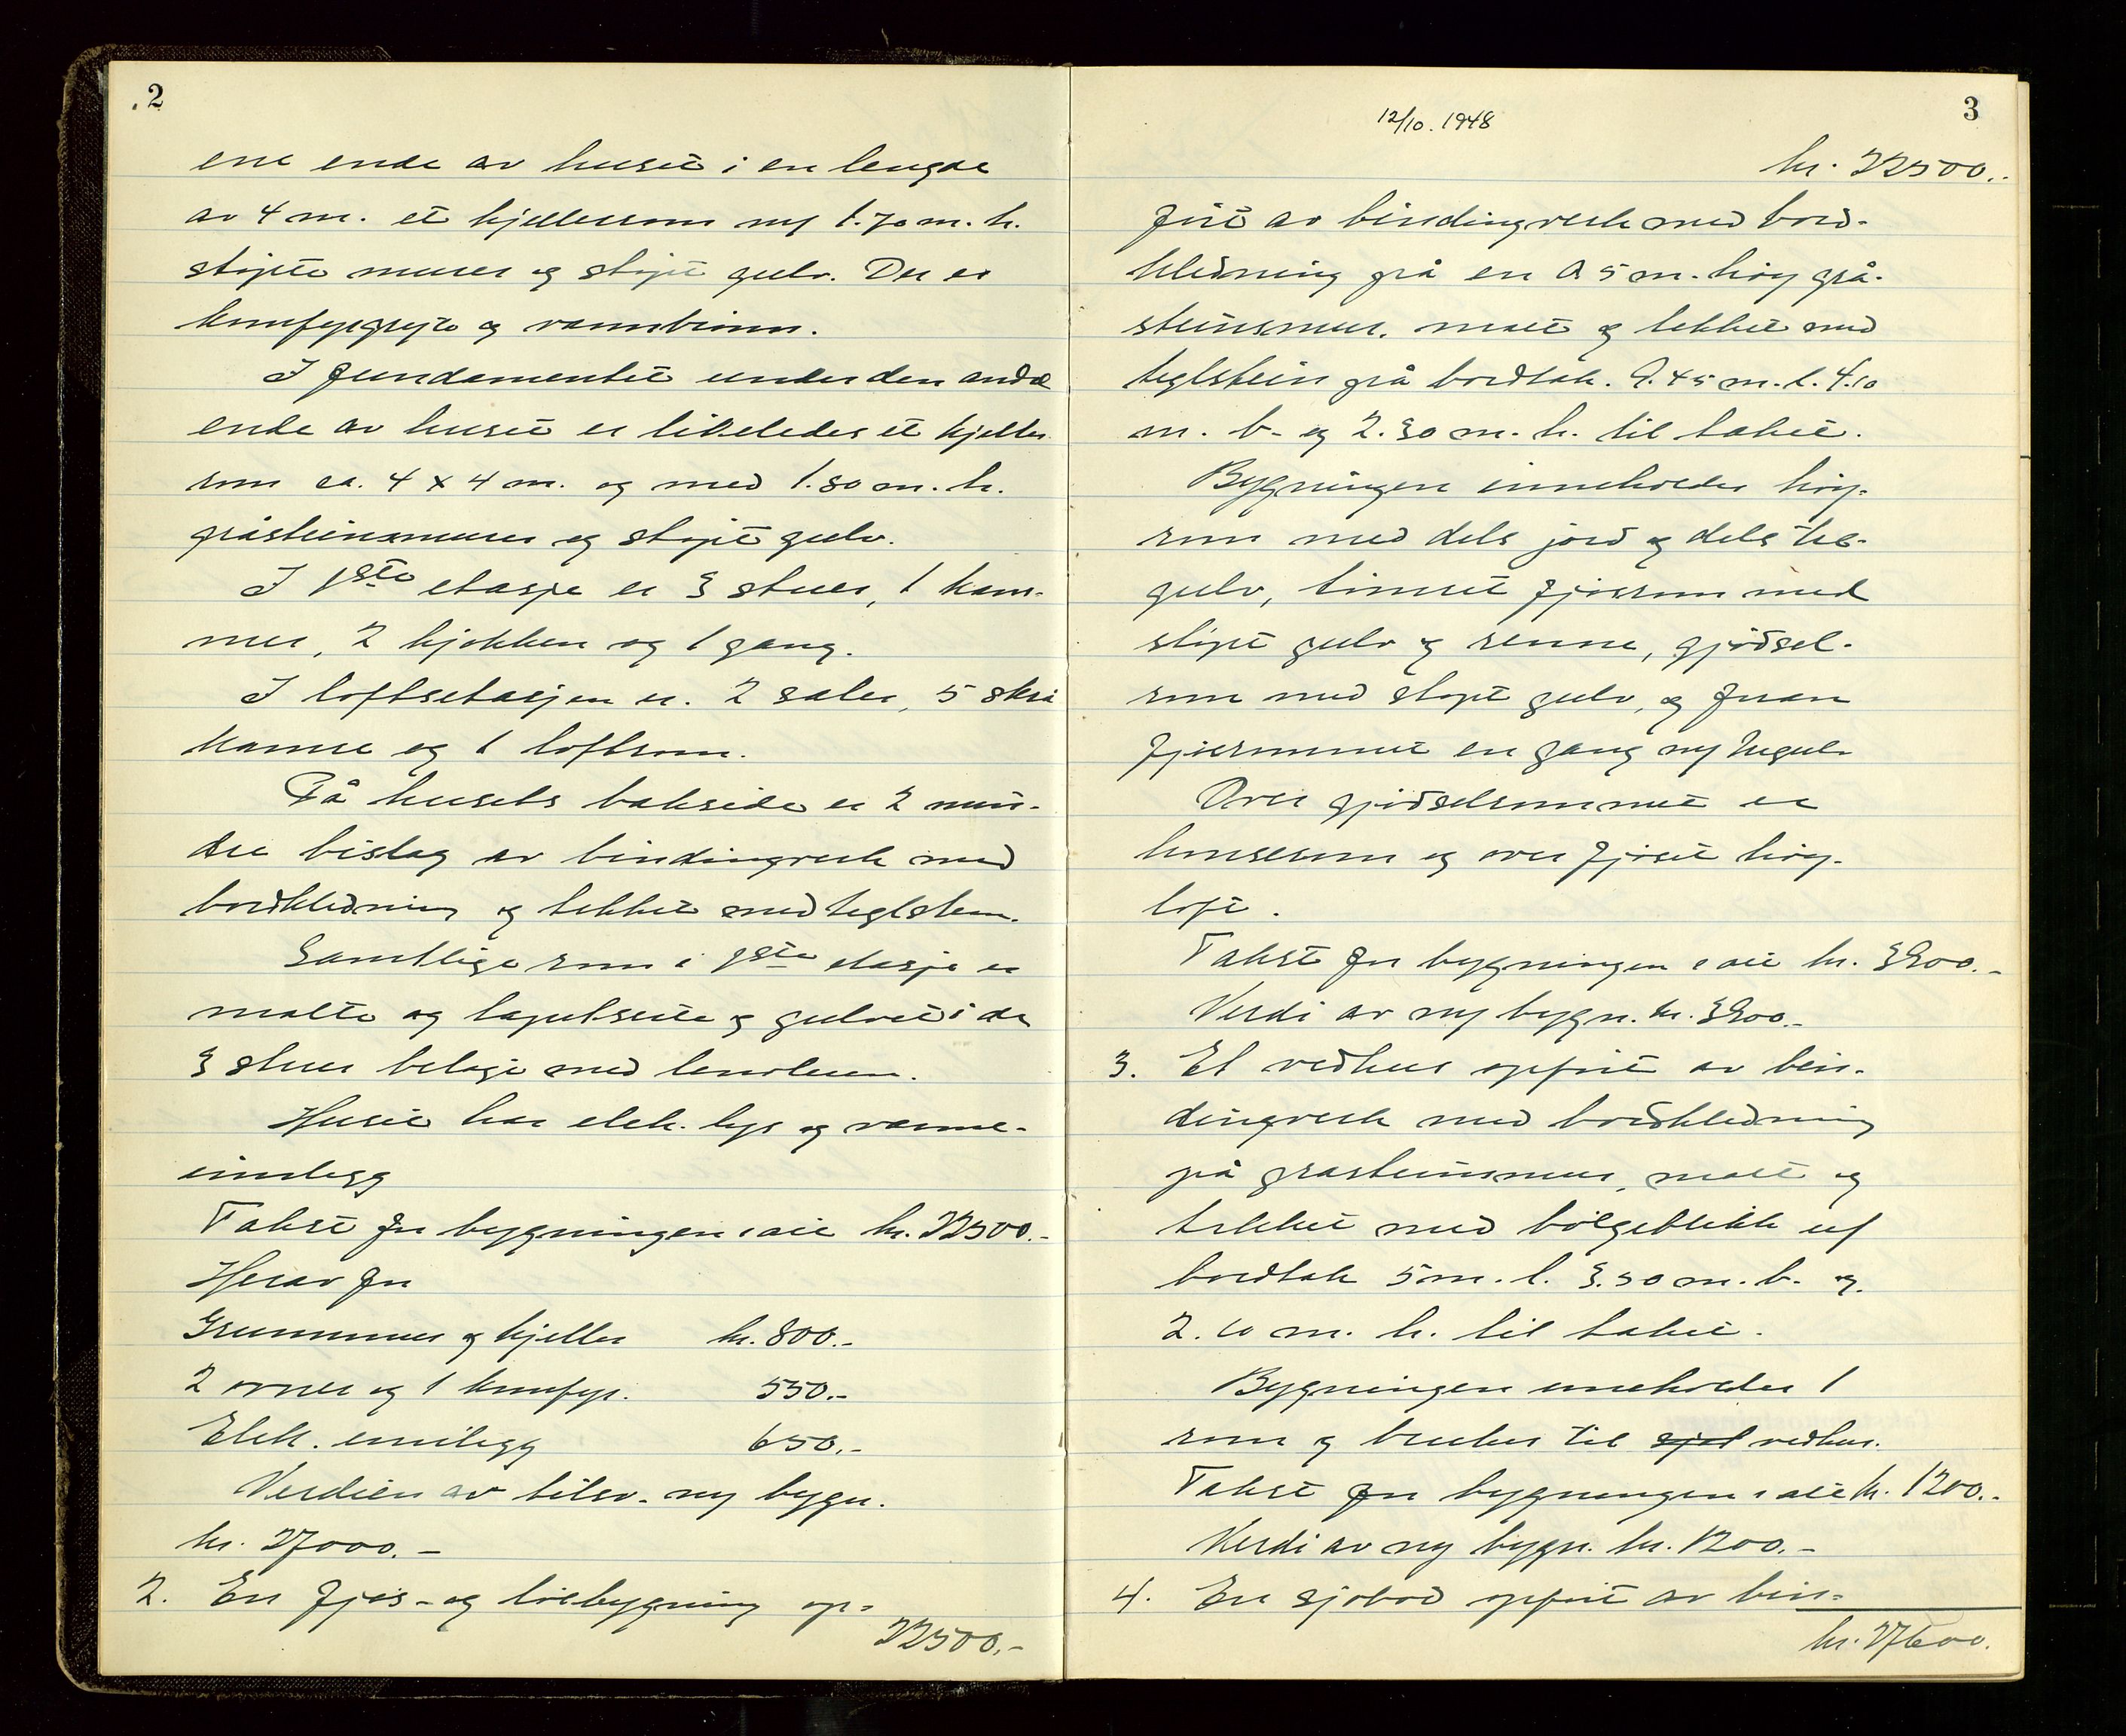 2
ene ende av huset i en lengde
av 4 m. et kjellerrom m/ 1.70 m. h.
støpte murer og støpt gulv. Der er
komfyrgryte og vannbrønn.
I fundamentet under den andre
ende av huset er likeledes et kjeller-
rom ca. 4 x 4 m. og med 1.80 m. h.
gråsteinsmurer og støpt gulv.
I 1ste etasje er 3 stuer, 1 kam-
mer, 2 kjøkken og 1 gang.
I loftsetasjen er. 2 saler, 5 skrå
kamre og 1 loftsrom.
På husets bakside er 2 min-
dre bislag av bindingverk med
bordkledning og tekket med teglstein.
Samtlige rom i 1ste etasje er
malte og tapetserte og gulvet i de
3 stuer belagt med linoleum.
Huset har elek. lys og varme-
innlegg
Takst for bygningen i alt kr. 22500.-
Herav for
Grunnmur og kjeller kr. 800.-
2 ovner og 1 komfyr. 550.-
Elek. innlegg 650.-
Verdien av tilsv. ny bygn.
kr. 27000.-
2. En fjøs- og løebygning op-
22500.-
12/10. 1948
3
kr. 22500.-
ført av bindingverk med bord-
kledning på en 0.5 m. høy grå-
steinsmur, malt og tekket med
teglstein på bordtak. 9.45 m. l. 4.10
m. b. og 2.30 m. h. til taket.
Bygningen inneholder høy-
rom med dels jord og dels tre-
gulv, timret fjøsrom med
støpt gulv og renne, gjødsel-
rom med støpt gulv, og foran
fjøsrommet en gang m/ tregulv
Over gjødselrommet er
hønserom og over fjøset høy-
loft.
Takst for bygningen i alt kr. 3900.-
Verdi av ny bygn. kr. 3900.-
3. Et vedhus oppført av bin-
dingverk med bordkledning
på gråsteinsmur, malt og
tekket med bølgeblikk på
bordtak 5 m. l. 3.50 m. b. og
2.10 m. h. til taket.
Bygningen inneholder 1
rom og brukes til sjøl vedhus.
Takst for bygningen i alt kr. 1200.-
Verdi av ny bygn. kr. 1200.-
4. En sjøbod oppført av bin-
kr. 27600.